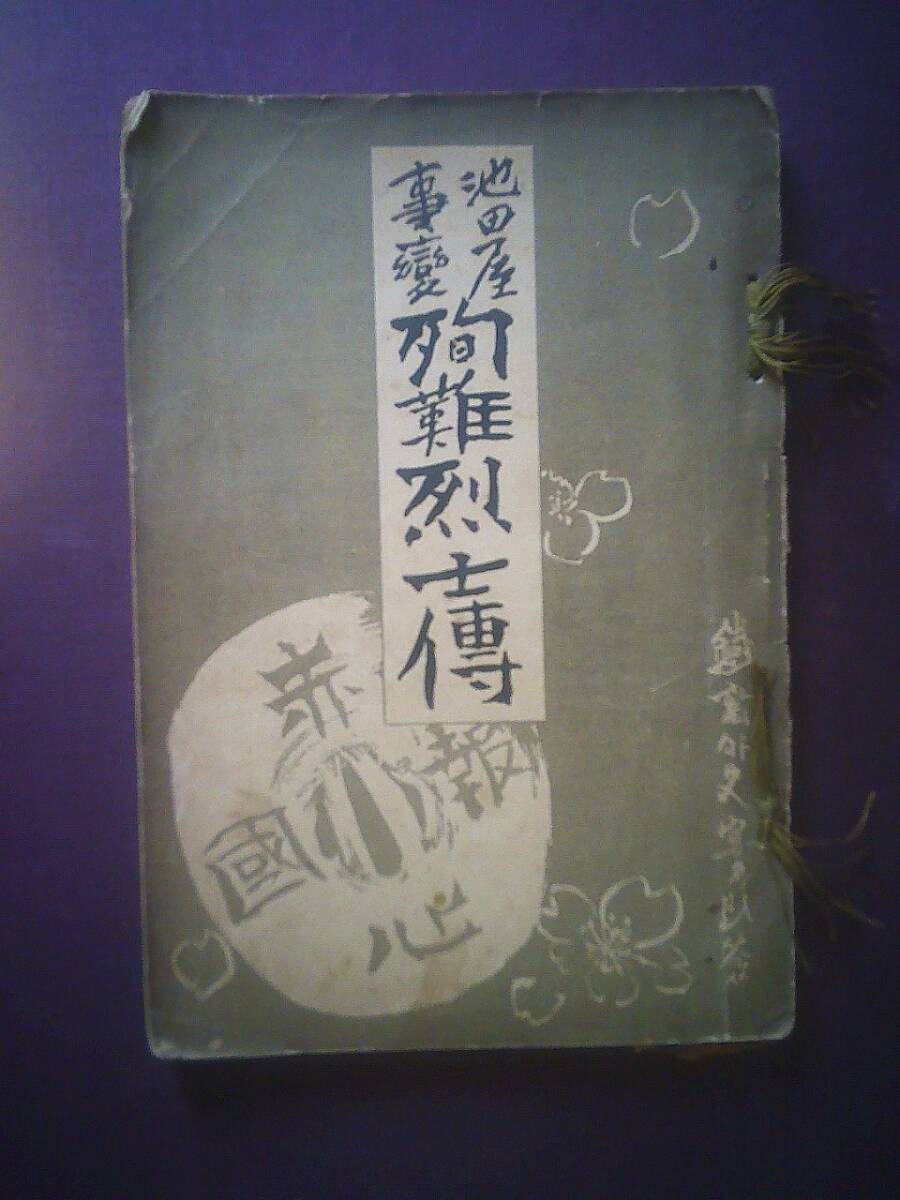 池田屋
事變
殉難烈士傳
赤心
報國
外史